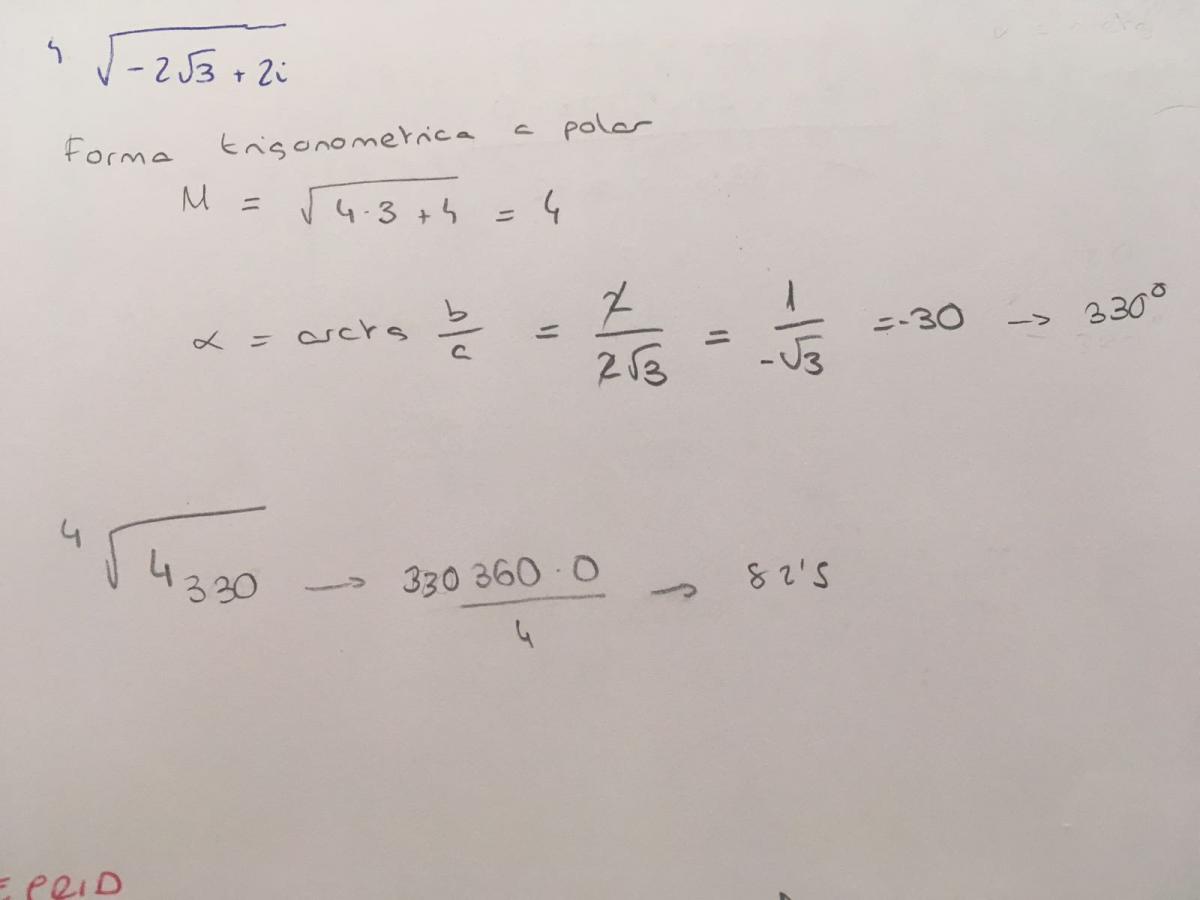 4√(-2√3 + 2i)
Forma trigonometrica a polar
M = √(4·3 + 4) = 4
α = arctg b/a = 2/2√3 = 1/-√3 = -30 → 330°
4√(4₃₃₀) → 330 360·0/4 → 82'5
E PRID